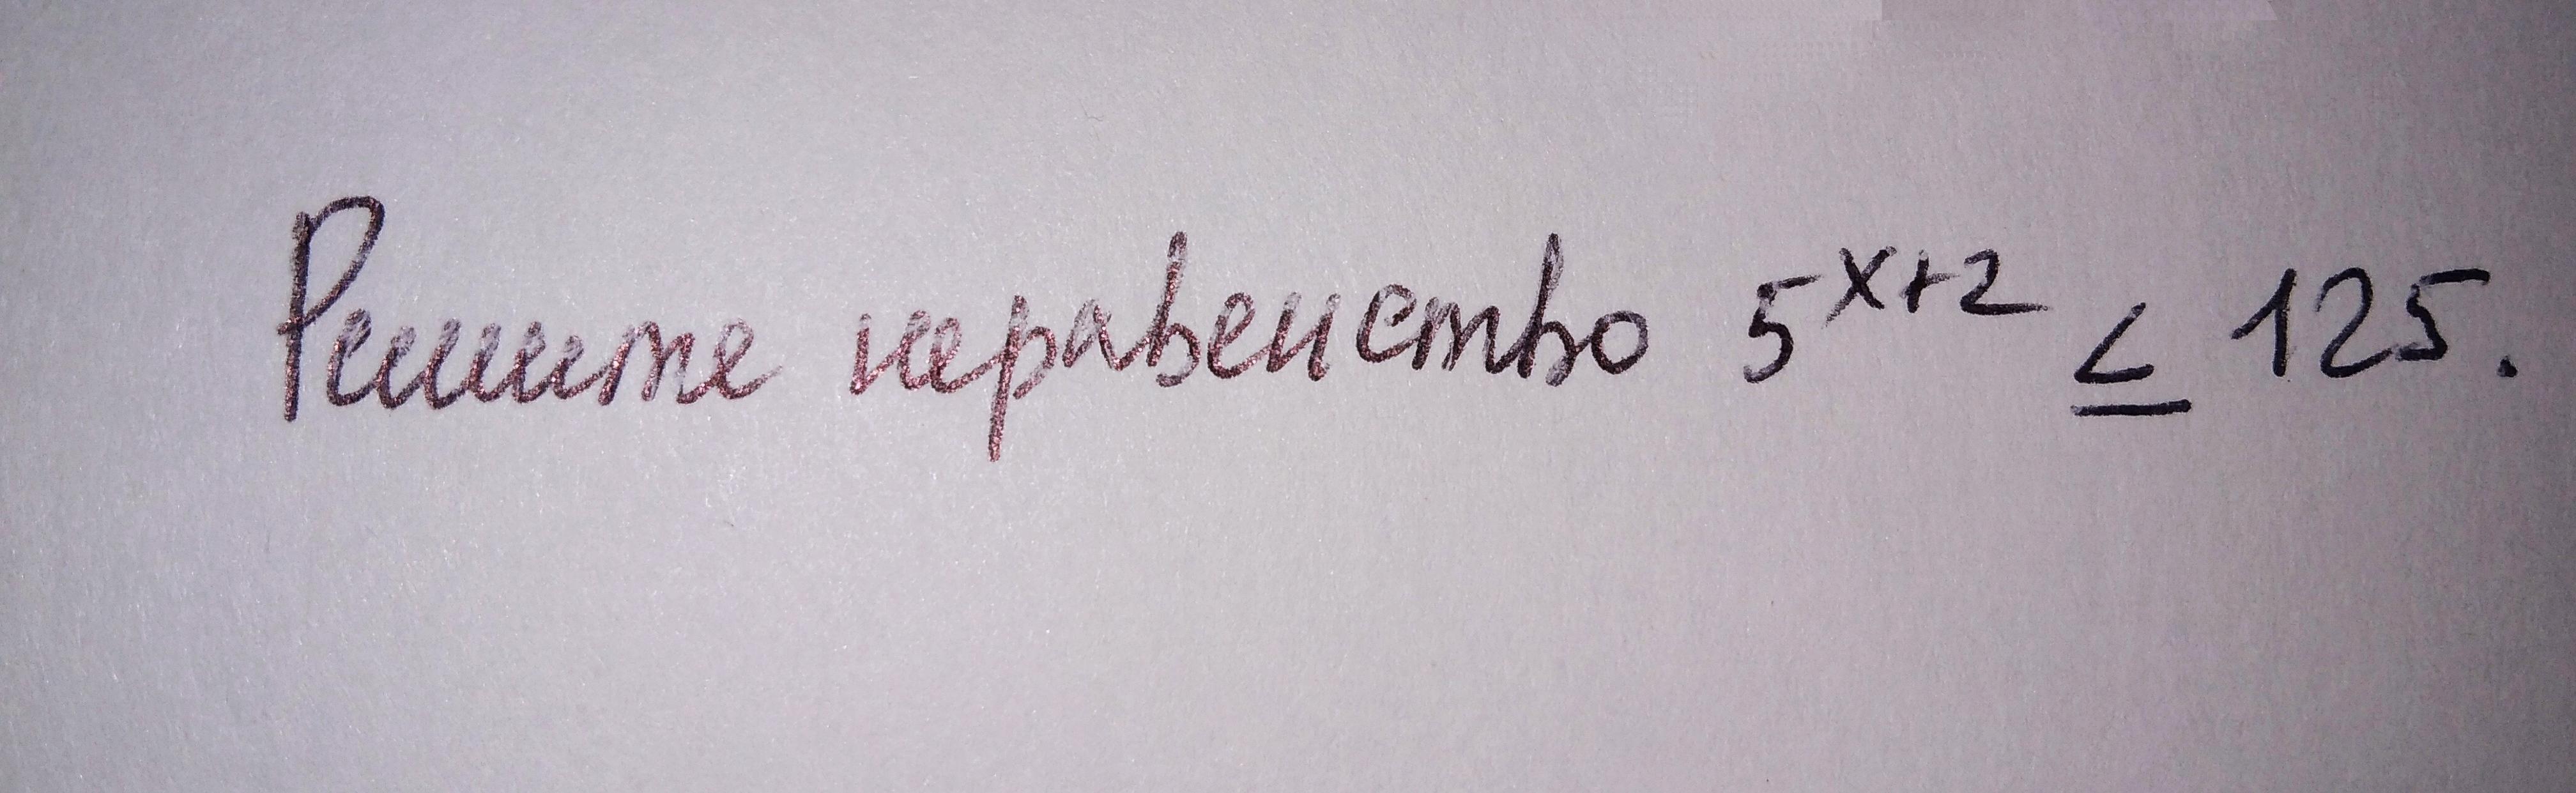 Решите неравенство 5^{x+2} ≤ 125.